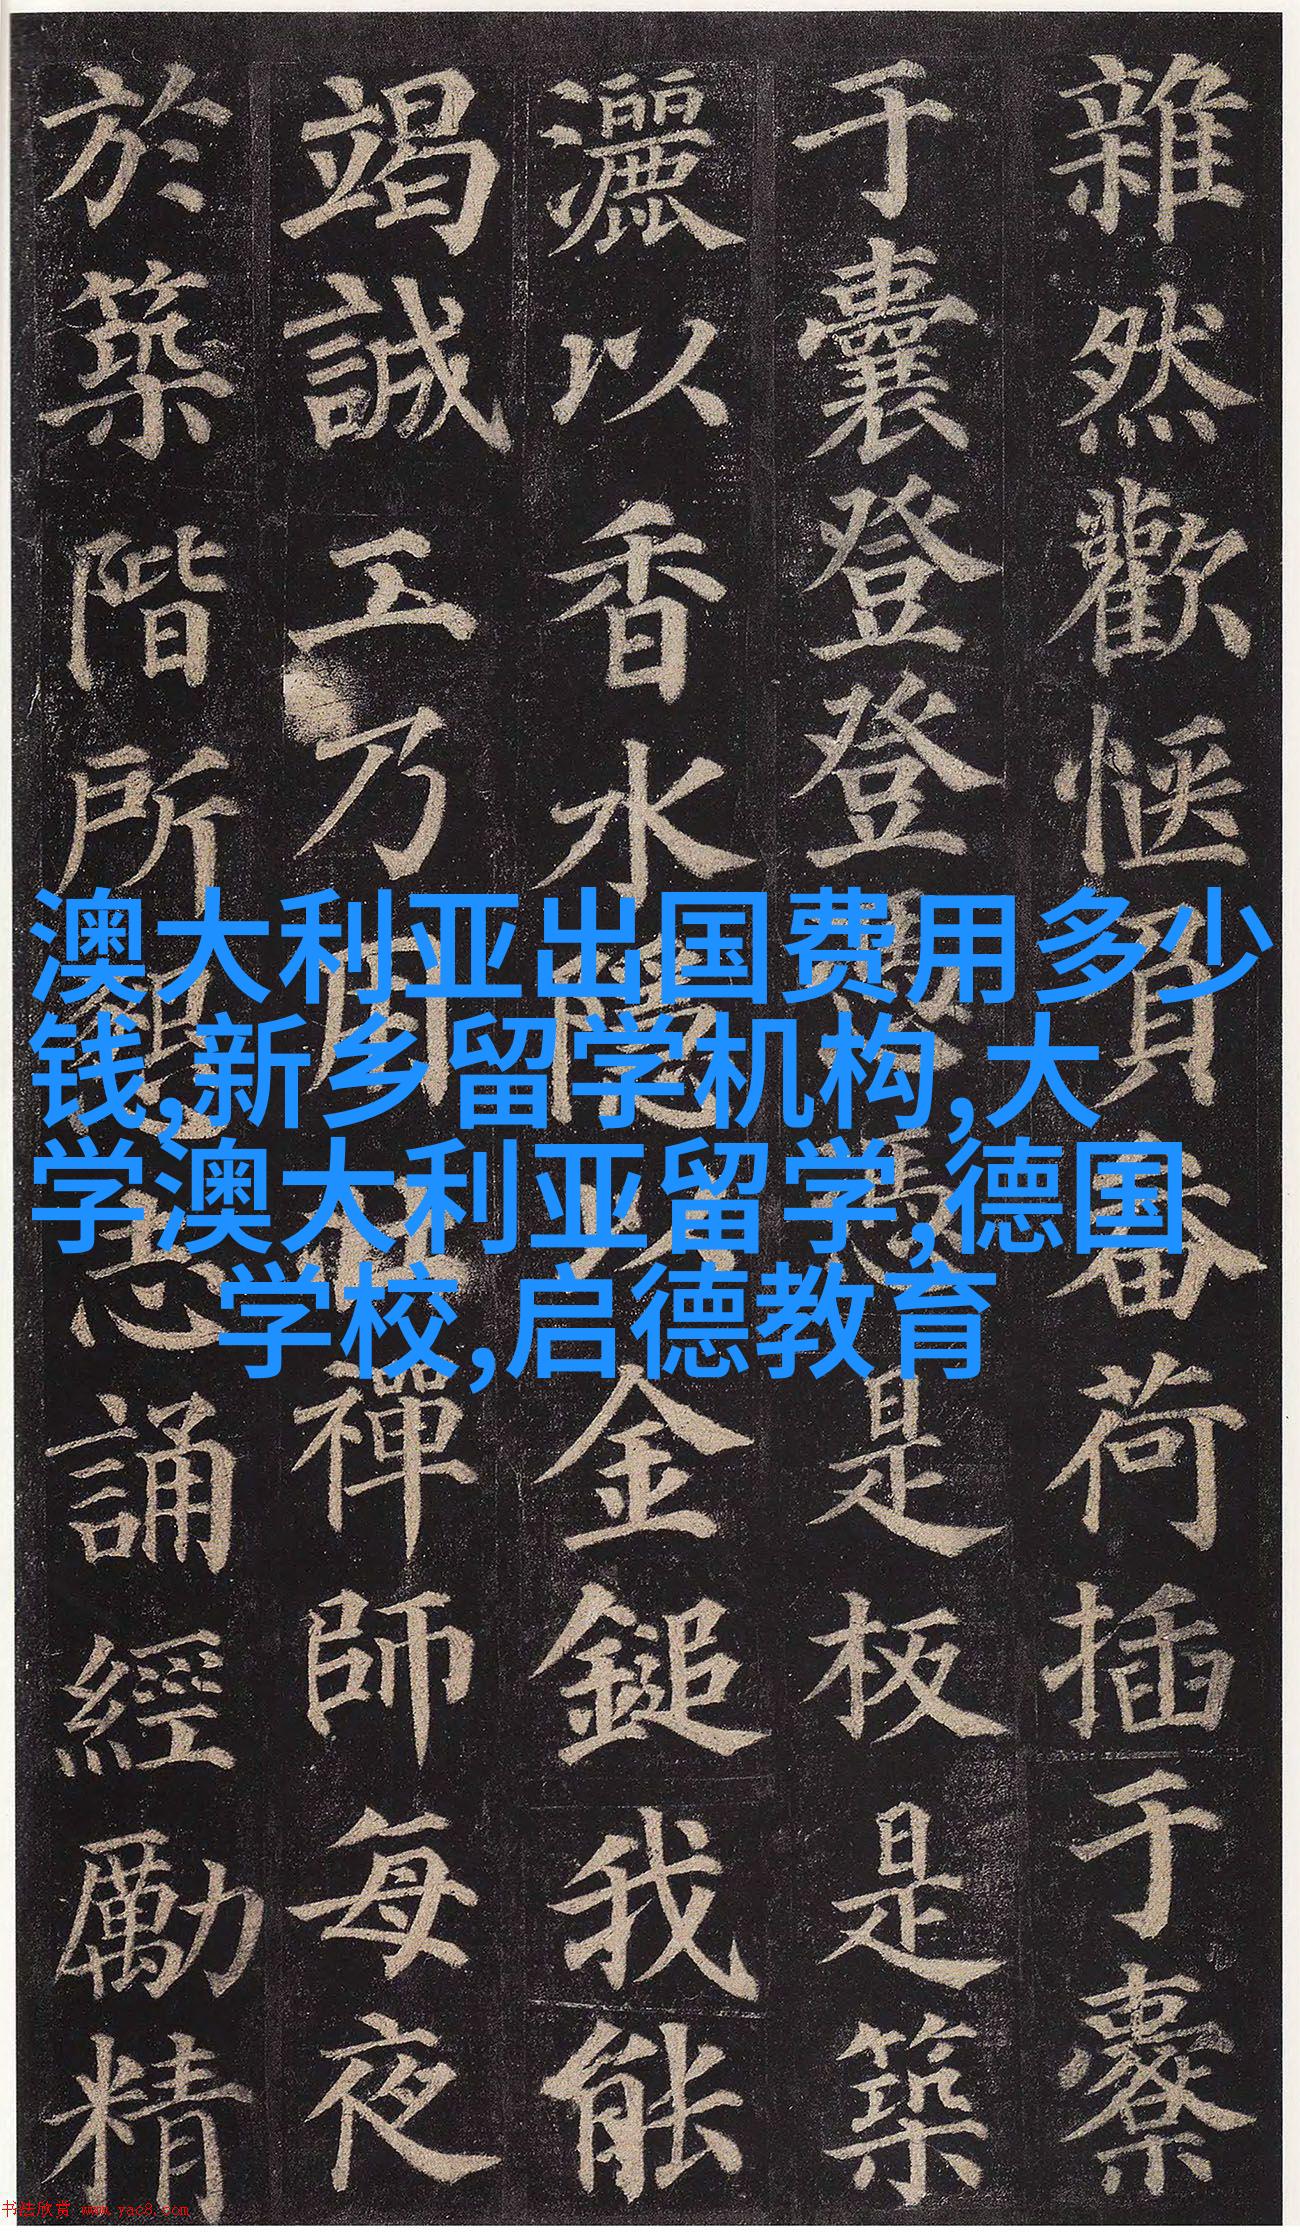 雜然歡愜負畚荷插于橐
于囊登登憑憑是板是築
灑以香水隱以金鎚我能
竭誠工乃用壯禪師每夜
於築階所懇志誦經勵精
澳大利亚出国费用多少
钱,新乡留学机构,大
学澳大利亚留学,德国
学校,启德教育
书法欣赏 www.yac8.com